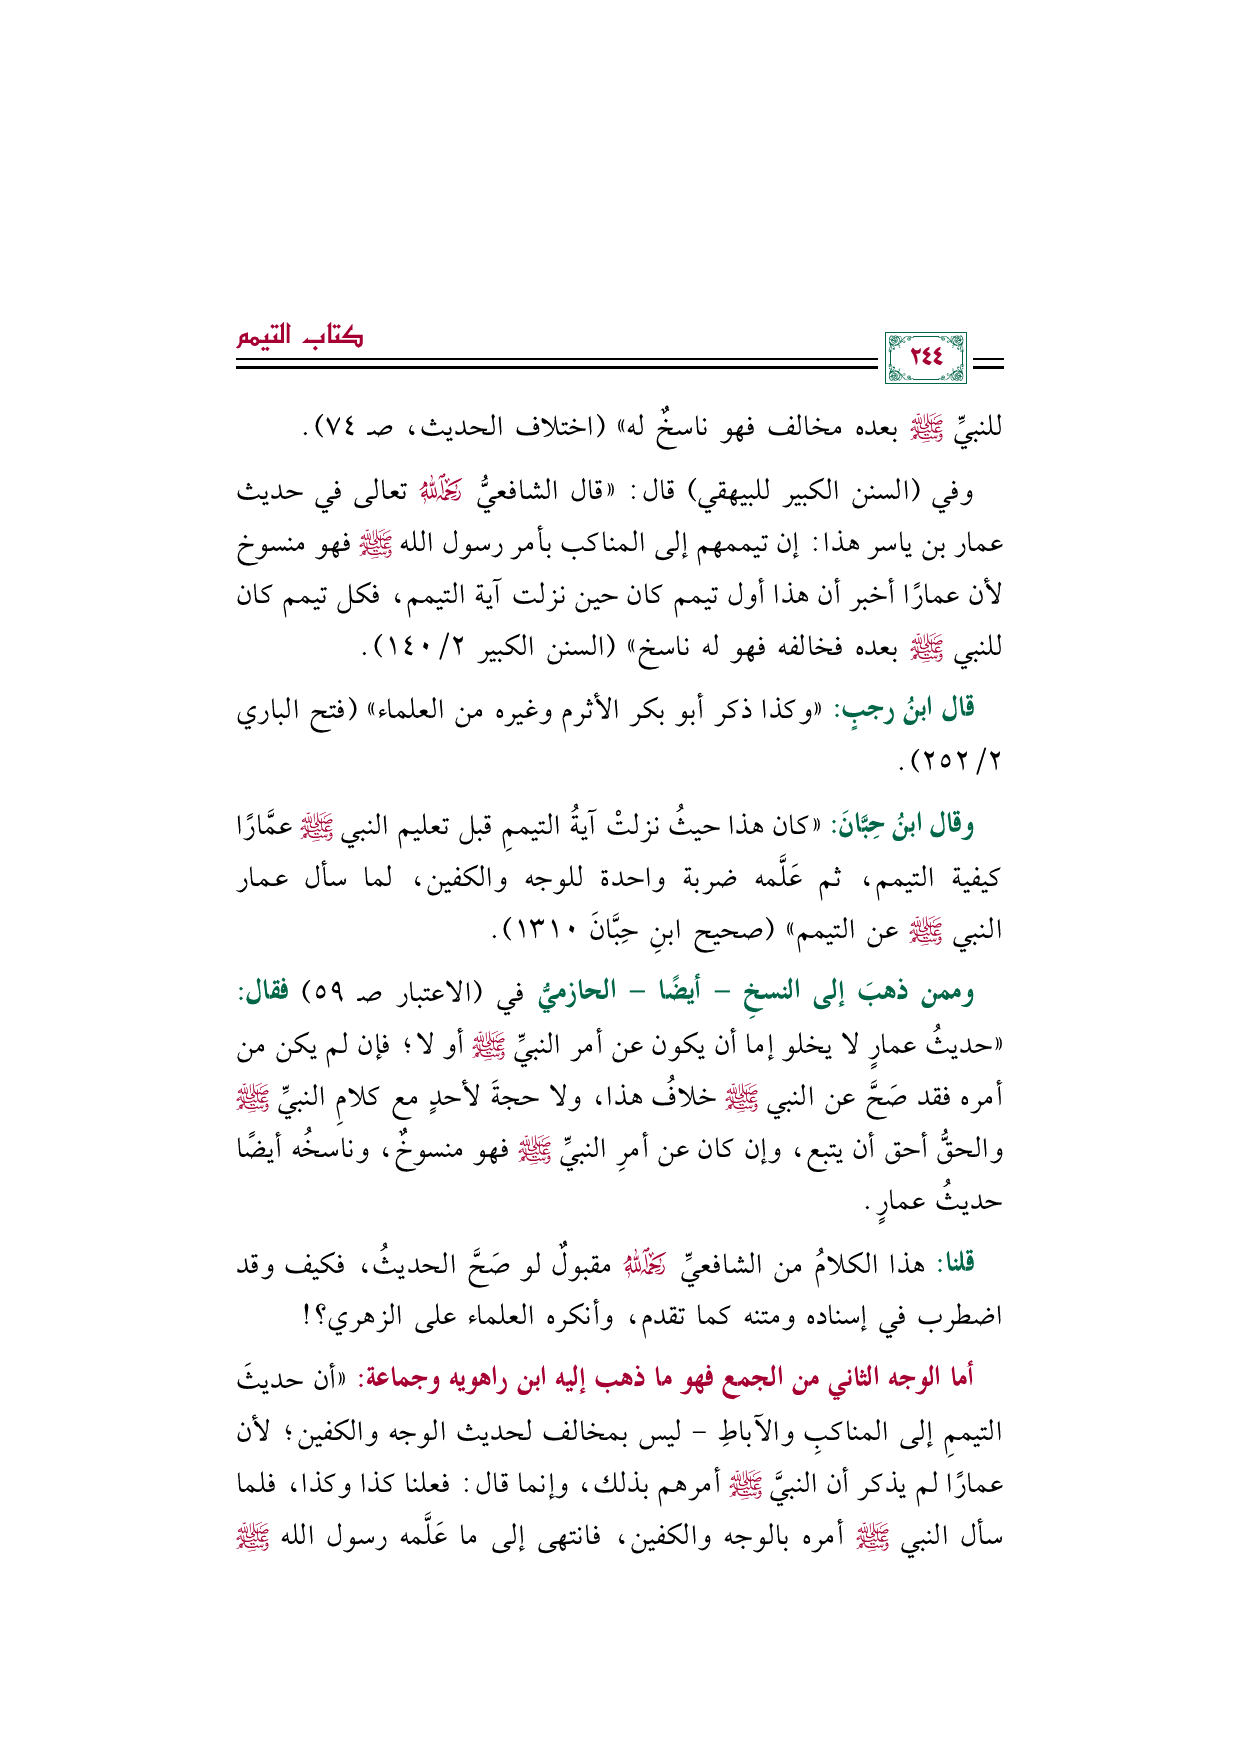 كتاب التيمم
٢٤٤
للنبيِّ ﷺ بعده مخالف فهو ناسخٌ له» (اختلاف الحديث، صـ ٧٤).
وفي (السنن الكبير للبيهقي) قال: «قال الشافعيُّ رَحِمَهُ اللهُ تعالى في حديث
عمار بن ياسر هذا: إن تيممهم إلى المناكب بأمر رسول الله ﷺ فهو منسوخ
لأن عمارًا أخبر أن هذا أول تيمم كان حين نزلت آية التيمم، فكل تيمم كان
للنبي ﷺ بعده فخالفه فهو له ناسخ» (السنن الكبير ٢/ ١٤٠).
قال ابنُ رجبٍ: «وكذا ذكر أبو بكر الأثرم وغيره من العلماء» (فتح الباري
٢/ ٢٥٢).
وقال ابنُ حِبَّانَ: «كان هذا حيثُ نزلتْ آيةُ التيممِ قبل تعليم النبي ﷺ عمَّارًا
كيفية التيمم، ثم عَلَّمه ضربة واحدة للوجه والكفين، لما سأل عمار
النبي ﷺ عن التيمم» (صحيح ابنِ حِبَّانَ ١٣١٠).
وممن ذهبَ إلى النسخِ – أيضًا – الحازميُّ في (الاعتبار صـ ٥٩) فقال:
«حديثُ عمارٍ لا يخلو إما أن يكون عن أمر النبيِّ ﷺ أو لا؛ فإن لم يكن من
أمره فقد صَحَّ عن النبي ﷺ خلافُ هذا، ولا حجةَ لأحدٍ مع كلامِ النبيِّ ﷺ
والحقُّ أحق أن يتبع، وإن كان عن أمرِ النبيِّ ﷺ فهو منسوخٌ، وناسخُه أيضًا
حديثُ عمارٍ.
قلنا: هذا الكلامُ من الشافعيِّ رَحِمَهُ اللهُ مقبولٌ لو صَحَّ الحديثُ، فكيف وقد
اضطرب في إسناده ومتنه كما تقدم، وأنكره العلماء على الزهري؟!
أما الوجه الثاني من الجمع فهو ما ذهب إليه ابن راهويه وجماعة: «أن حديثَ
التيممِ إلى المناكبِ والآباطِ – ليس بمخالف لحديث الوجه والكفين؛ لأن
عمارًا لم يذكر أن النبيَّ ﷺ أمرهم بذلك، وإنما قال: فعلنا كذا وكذا، فلما
سأل النبي ﷺ أمره بالوجه والكفين، فانتهى إلى ما عَلَّمه رسول الله ﷺ